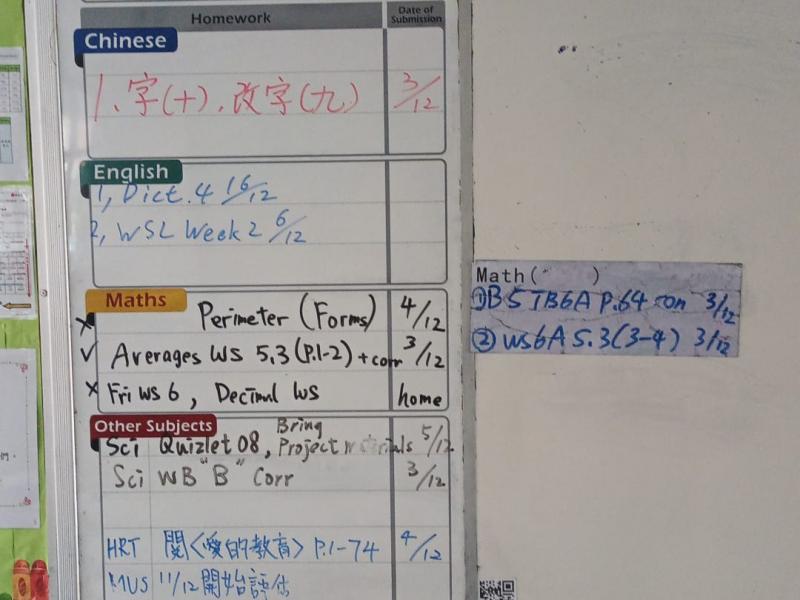 Homework
Date of Submission
Chinese
1、字(十)、改字(九) 3/12
English
1, Dict. 4 16/12
2, WSL Week 2 6/12
Maths
x Perimeter (Forms) 4/12
✓ Averages WS 5.3 (P.1-2) + corr 3/12
x Fri WS 6, Decimal WS home
Other Subjects
Sci Quizlet 08, Bring Project Materials 5/12
Sci WB "B" Corr 3/12
HRT 閱〈愛的教育〉P.1-74 4/12
MUS 11/12 開始評估
Math( )
①B5 TB6A P.64 3/12
② WS6A 5.3(3-4) 3/12